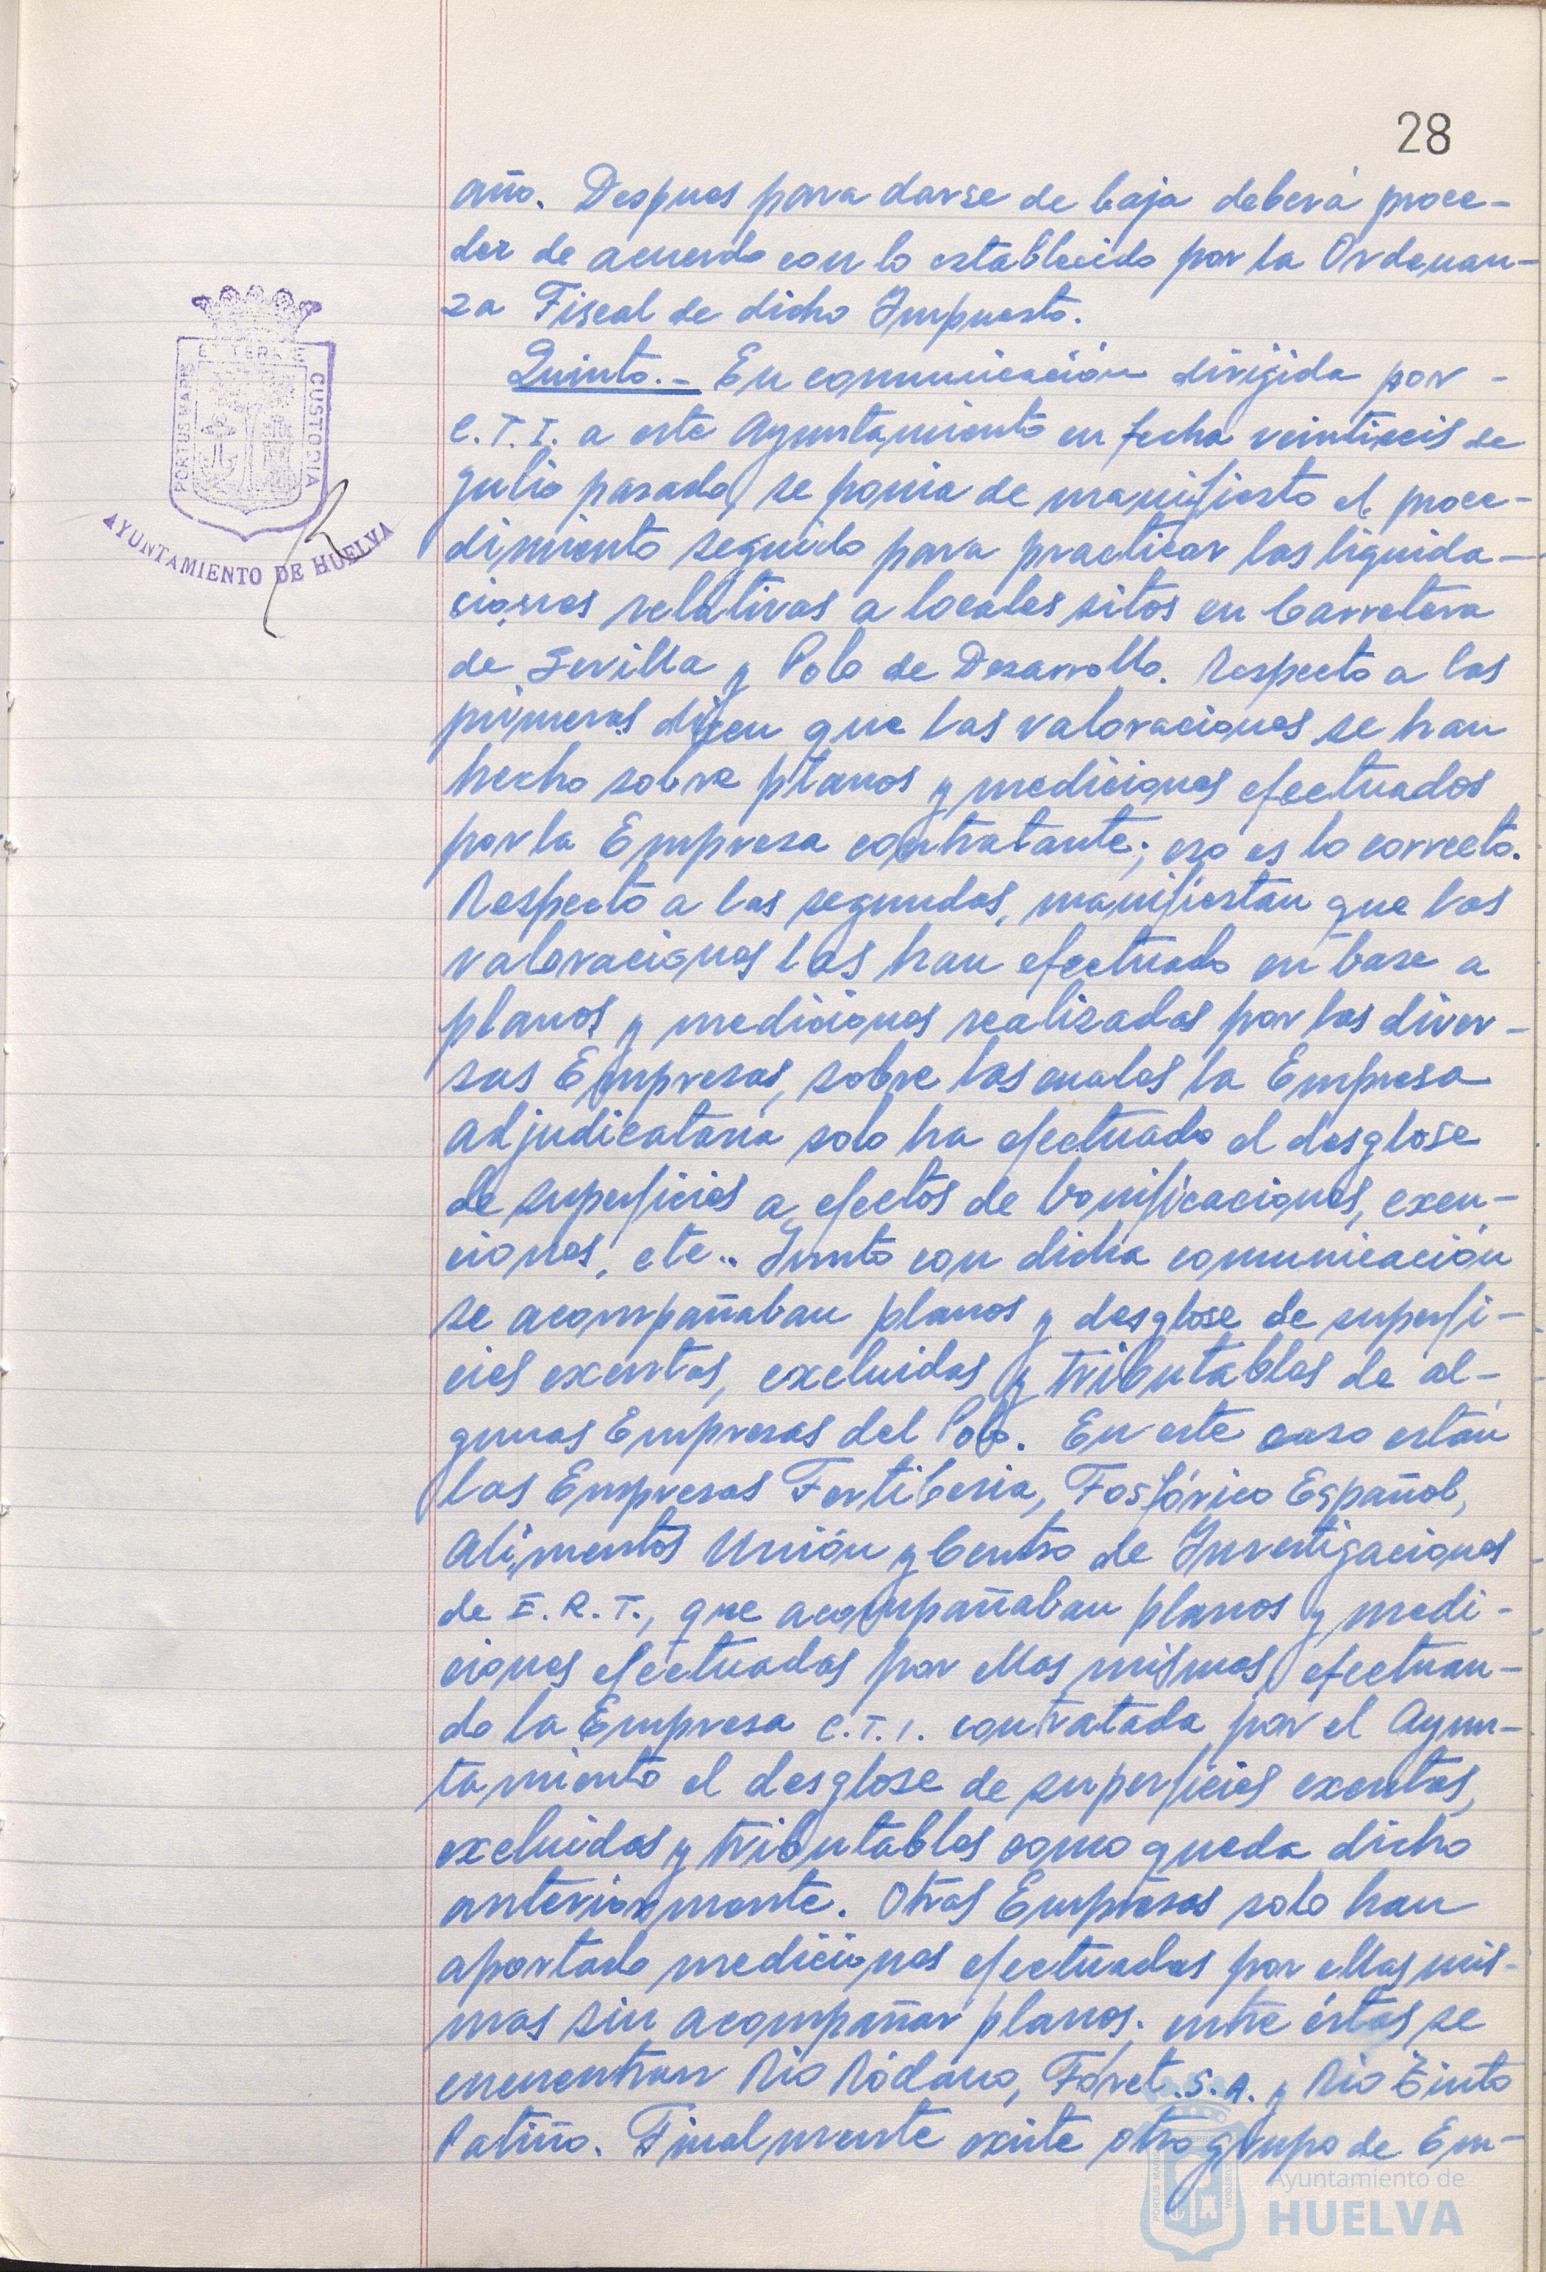 28
año. Despues para darse de baja deberá proce-
der de acuerdo con lo establecido por la Ordenan-
za Fiscal de dicho Impuesto.
Quinto.- En comunicación dirigida por -
C.T.I. a este Ayuntamiento en fecha veintiseis de
Julio pasado, se ponia de manifiesto el proce-
dimiento seguido para practicar las liquida-
ciones relativas a locales sitos en Carretera
de Sevilla y Polo de Desarrollo. Respecto a las
primeras dicen que las valoraciones se han
hecho sobre planos y mediciones efectuados
por la Empresa contratante; eso es lo correcto.
Respecto a las segundas, manifiestan que las
valoraciones las han efectuado en base a
planos y mediciones realizadas por las diver-
sas Empresas, sobre las cuales la Empresa
adjudicataria solo ha efectuado el desglose
de superficies a efectos de bonificaciones, exen-
ciones, etc.. Junto con dicha comunicación
se acompañaban planos y desglose de superfi-
cies exentas, excluidas y tributables de al-
gunas Empresas del Polo. En este caso están
las Empresas Fertiberia, Fosfórico Español,
Alimentos Unión y Centro de Investigaciones
de E.R.T., que acompañaban planos y medi-
ciones efectuadas por ellas mismas, efectuan-
do la Empresa C.T.I. contratada por el Ayun-
tamiento el desglose de superficies exentas,
excluidas y tributables como queda dicho
anteriormente. Otras Empresas solo han
aportado mediciones efectuadas por ellas mis-
mas sin acompañar planos; entre éstas se
encuentran Rio Ródano, Foret.S.A. y Rio Tinto
Patiño. Finalmente existe otro grupo de Em-
PORTUS MARIS
ET TERRAE
CUSTODIA
AYUNTAMIENTO DE HUELVA
Ayuntamiento de
HUELVA